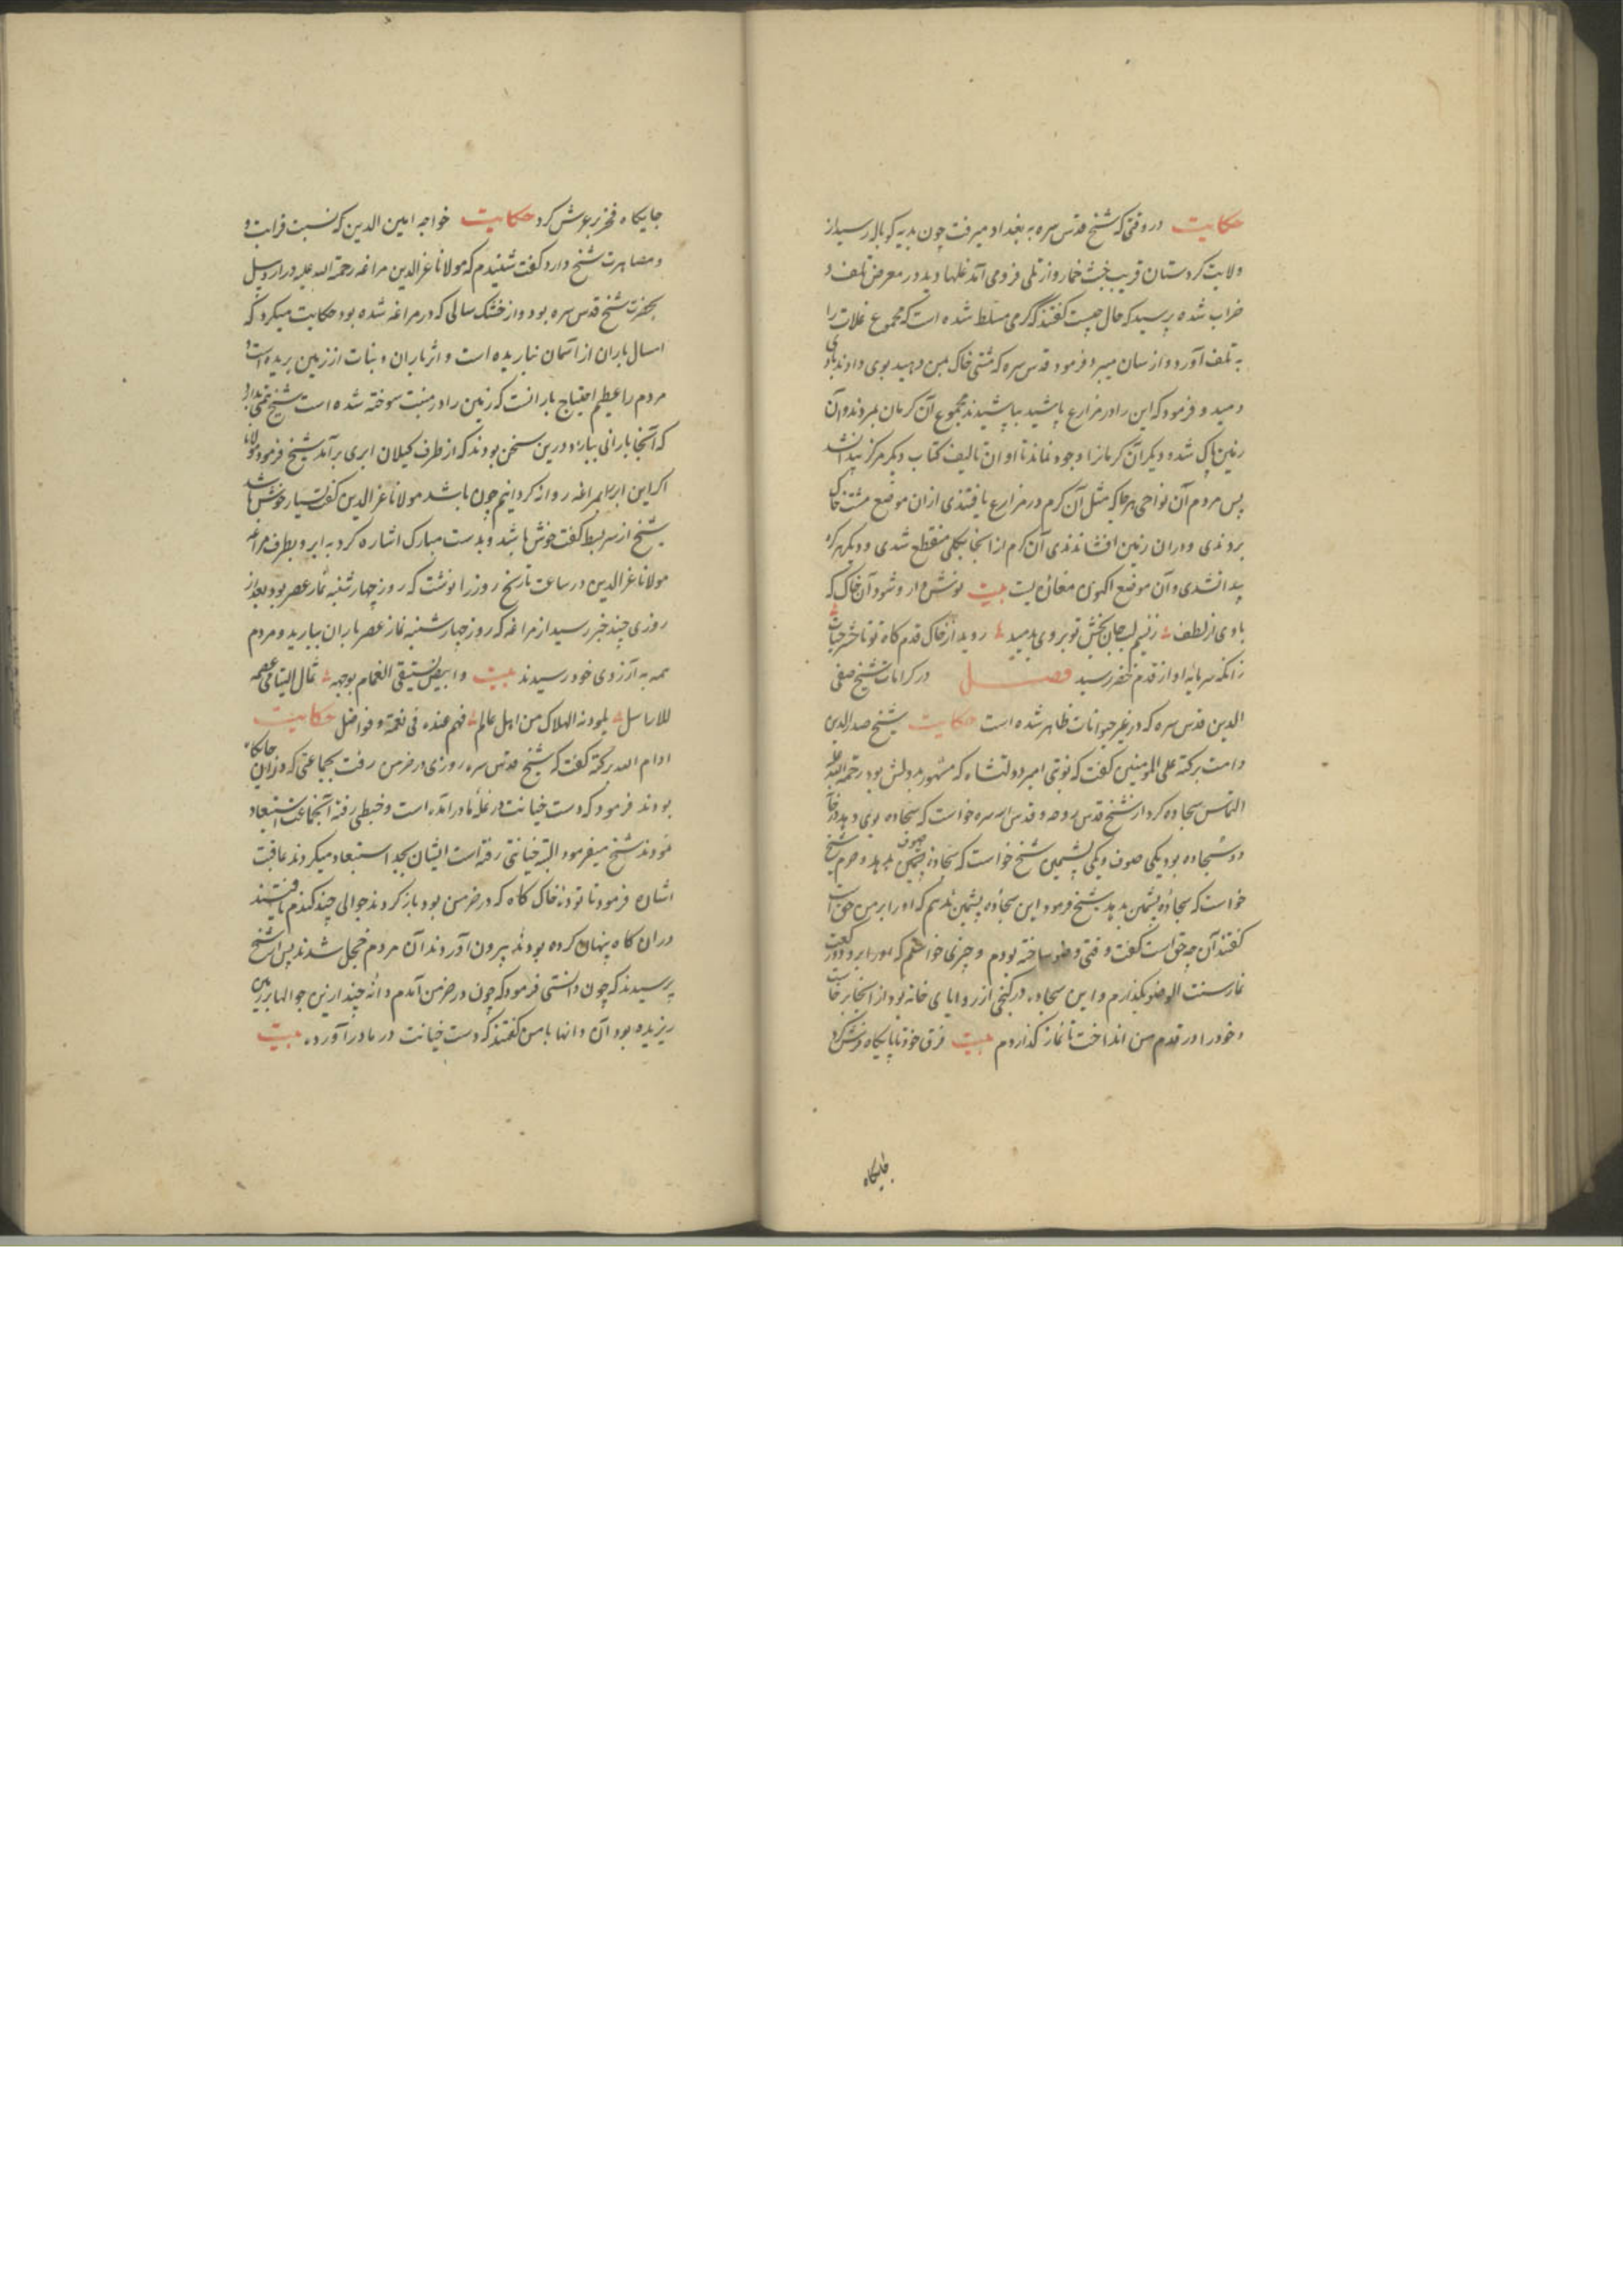 حکایت در وقتی که شیخ قدس سره به بغداد میرفت چون بدیه کوباله رسید از
ولایت کردستان قریب خمارو از تلی فرو می آمد غلها دید در معرض تلف و
خراب شده پرسید که حال چیست گفتند که کرمی مسلط شده است که مجموع غلات را
به تلف آورد و از سان میبرد فرمود قدس سره که مشتی خاک بمن دهید بوی دادند بادی
دمید و فرمود که این را در مزارع پاشید بپاشیدند مجموع آن کرمان بمردند و آن
زمین پاک شد و دیگر آن کرمانرا وجود نماند تا اوان تالیف کتاب دیگر هرگز پیدا نشد
پس مردم آن نواحی هر جا که مثل آن کرم در مزارع یافتندی از ان موضع مشتی خاک
بردندی و در ان زمین افشاندندی آن کرم از انجا بکلی منقطع شدی و دیگر هرگز
پیدا نشدی و آن موضع اکنون بیت نوش دارو شود آن خاک که
بادی از لطف زنسیم لب جان بخش تو بر وی بدمید روید از خاک قدم گاه تو تا حشر حیات
زانکه سرمایه او از قدم خضر رسید فصل در کرامات شیخ صفی
الدین قدس سره که در غیر حیوانات ظاهر شده است حکایت شیخ صدرالدین
دامت برکته علی المومنین گفت که نوبتی امیر دولتشاه که مشهور بود رحمة الله علیه
التماس سجاده کرد از شیخ قدس روحه و قدس الله سره خواست که سجاده بوی دهد در خانه
دو سجاده بود یکی صوف و یکی پشمین شیخ خواست که سجاده صوف بدهد و حرم شیخ
خواست که سجاده پشمین بدهد شیخ فرمود این سجاده پشمین ندهم که او را بر من حق است
گفتند آن چه حق است گفت وقتی وضو ساخته بودم و چیزی خواستم که دو رکعت
نماز سنت الوضو بگذارم و این سجاده در کنجی از زوایای خانه بود از انجا برخاست
و خود را در قدم من انداخت تا نماز گذاردم بیت فرق خود تا پایگاه فرش کرد
جایگاه
جایگاه فخر بر عرش کرد حکایت خواجه امین الدین که نسبت قرابت و
و مصاهرت شیخ دارد گفت شنیدم که مولانا عزالدین مراغه رحمة الله علیه در اردبیل
بحضرت شیخ قدس سره بود و از خشک سالی که در مراغه شده بود حکایت میکرد که
امسال باران از آسمان نباریده است و اثر باران و نبات از زمین بریده است و
مردم را عظیم احتیاج بارانست که زمین را در منبت سوخته شده است شیخ
که آنجا بارانی ببارد درین سخن بودند که از طرف کیلان ابری برآمد شیخ فرمود مولانا
اگر این ابر را بمراغه روانه گردانیم چون باشد مولانا عزالدین گفت بسیار خوش باشد
شیخ از سر بسط گفت خوش باشد و بدست مبارک اشاره کرد به ابر و بطرف مراغه
مولانا عزالدین در ساعت تاریخ روز را نوشت که روز چهارشنبه نماز عصر بود بعد از
روزی چند خبر رسید از مراغه که روز چهارشنبه نماز عصر باران ببارید و مردم
همه به آرزوی خود رسیدند بیت وابیض یستسقی الغمام بوجهه ثمال الیتامی عصمه
للارامل یلوذ به الهلاک من اهل عالم فهم عنده فی نعمة و فواضل حکایت
ادام الله برکته گفت که شیخ قدس سره روزی در خرمن رفت بجماعتی که در آن جایگاه
بودند فرمود که دست خیانت در غله ما در آمده است و خبطی رفته آنجماعت استبعاد
نمودند شیخ میفرمود البته خیانتی رفته است ایشان بجد استبعاد میکردند عاقبت
اشاره فرمود تا توده خاک کاه که در خرمن بود باز کردند جوالی چند گندم یافتند
در ان کاه پنهان کرده بودند بیرون آوردند آن مردم خجل شدند پس از شیخ
پرسیدند که چون دانستی فرمود که چون در خرمن آمدم دانه چند ازین جوالها بر زمین
ریزیده بود آن دانها با من گفتند که دست خیانت در ما درآورده بیت